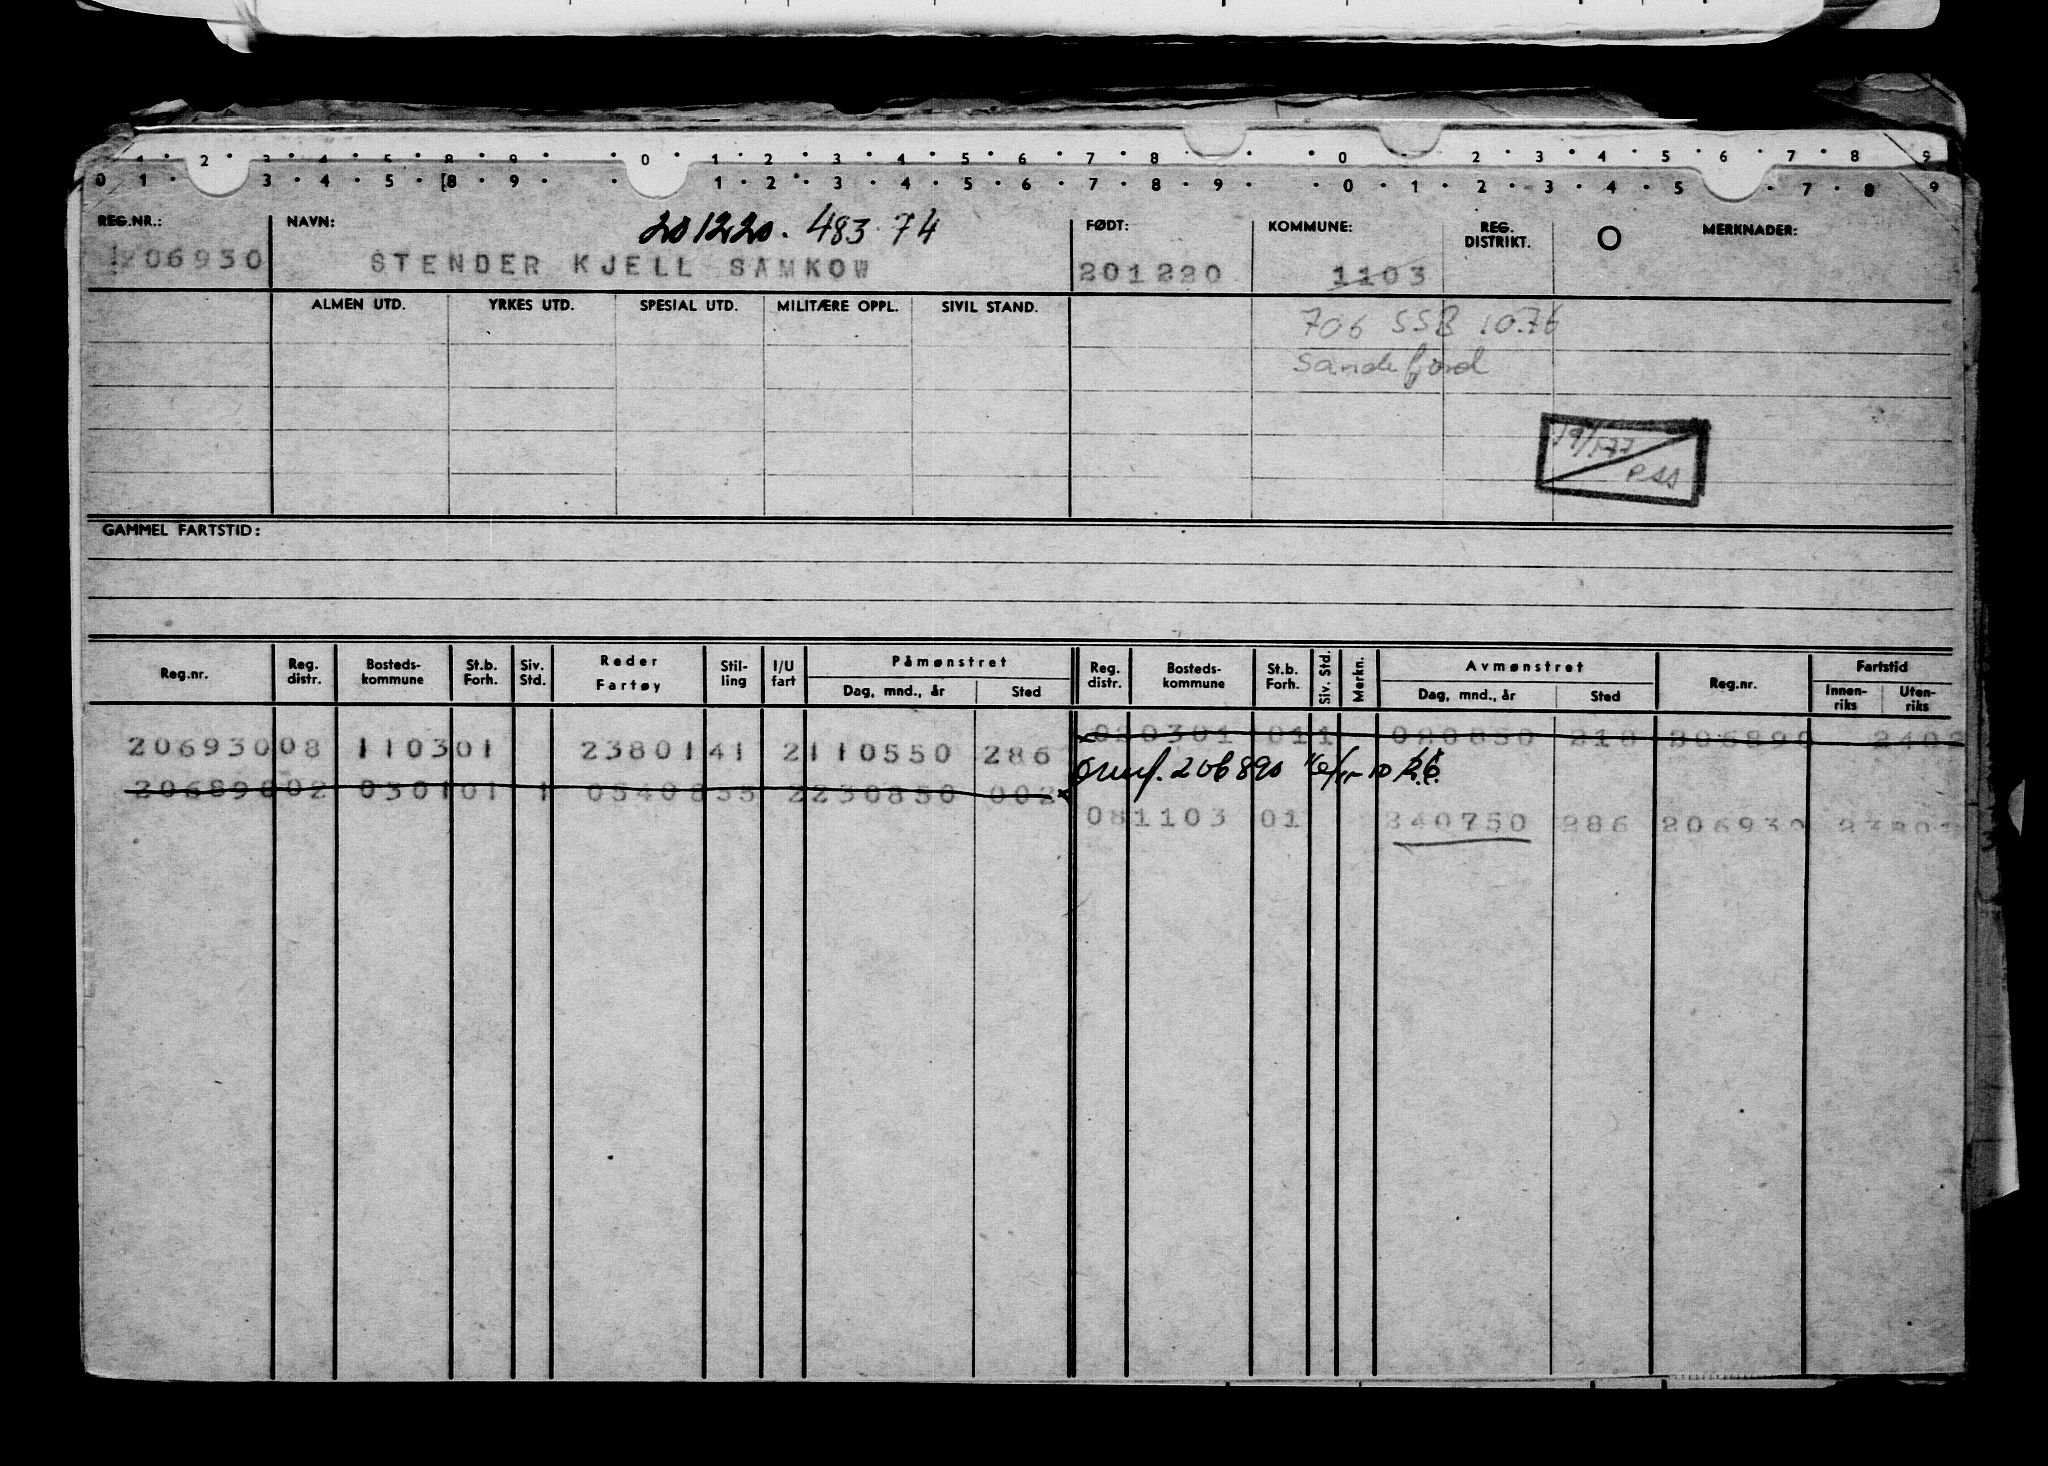 0 1 2 3 4 5 8 9 0 1 2 3 4 5 6 7 8 0 2 3 4 5 6 7 8 9
0 1 3 4 5 8 9 1 2 3 4 5 6 7 8 9 0 1 2 3 4 5 7 8 9
REG.NR.: NAVN: 201220. 483 74 FØDT: KOMMUNE: REG. DISTRIKT. O MERKNADER:
206930 STENDER KJELL SAMKOW 201220 1103
ALMEN UTD. YRKES UTD. SPESIAL UTD. MILITÆRE OPPL. SIVIL STAND.
706 SSB 10.76
Sandefjord
PSS
GAMMEL FARTSTID:
Reg.nr. Reg. distr. Bosteds-kommune St.b. Forh. Siv. Std. Reder Fartøy Stil-ling I/U fart Påmønstret Dag, mnd., år Sted Reg. distr. Bosteds-kommune St.b. Forh. Siv. Std. Merkn. Avmønstret Dag, mnd., år Sted Reg.nr. Fartstid Innen-riks Uten-riks
020301 01 1 218 206890
206930 08 1103 01 23801 41 2 110550 286
206890
206890 02 0301 01 1 2 230850 002
08 1103 01 240750 286 206930